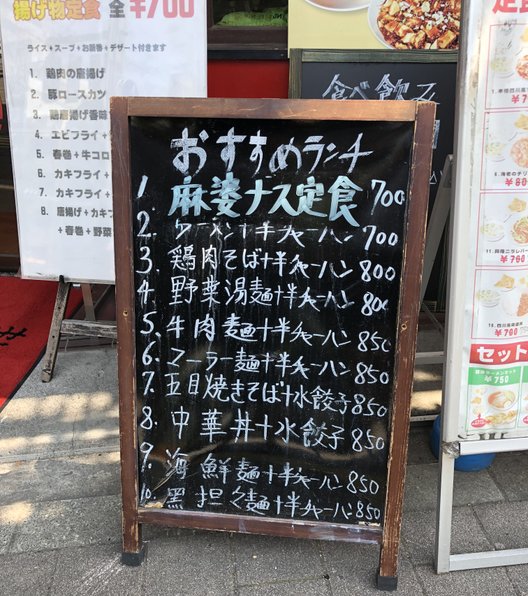 揚げ物定食 全¥700
ライス+スープ+お新香+デザート付きます
1. 鶏肉の唐揚げ
2. 豚ロースカツ
3. 鶏唐揚げ香味
4. エビフライ+
5. 春巻+牛コロ
6. カキフライ+
7. カキフライ+
8. 唐揚げ+カキフ
+春巻+野菜
食べ飲み
おすすめランチ
1. 麻婆ナス定食 700
2. ラーメン+半チャーハン 700
3. 鶏肉そば+半チャーハン 800
4. 野菜湯麺+半チャーハン 800
5. 牛肉麺+半チャーハン 850
6. マーラー麺+半チャーハン 850
7. 五目焼きそば+水餃子 850
8. 中華丼+水餃子 850
9. 海鮮麺+半チャーハン 850
10. 黒担々麺+半チャーハン 850
定食
セット
¥750